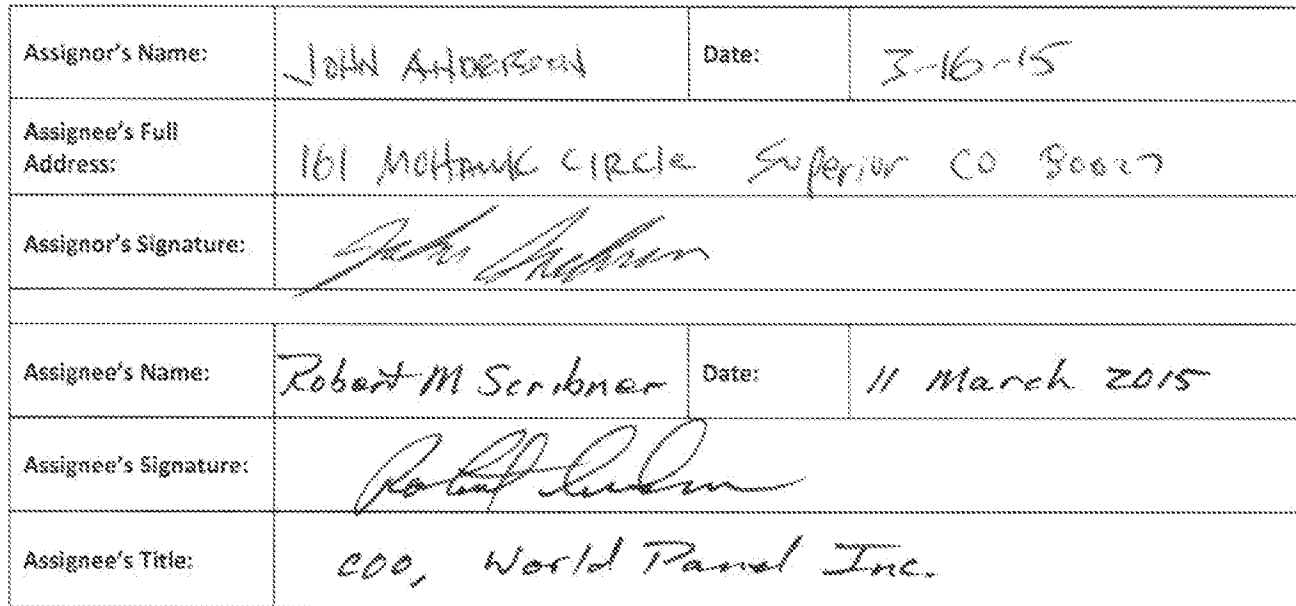 Assignor's Name: JOHN ANDERSON Date: 3-16-15
Assignee's Full
Address: 161 MOHAWK CIRCle Superior CO 80027
Assignor's Signature: John Anderson
Assignee's Name: Robert M Scribner Date: 11 March 2015
Assignee's Signature: Robert Scribner
Assignee's Title: COO, World Panel Inc.